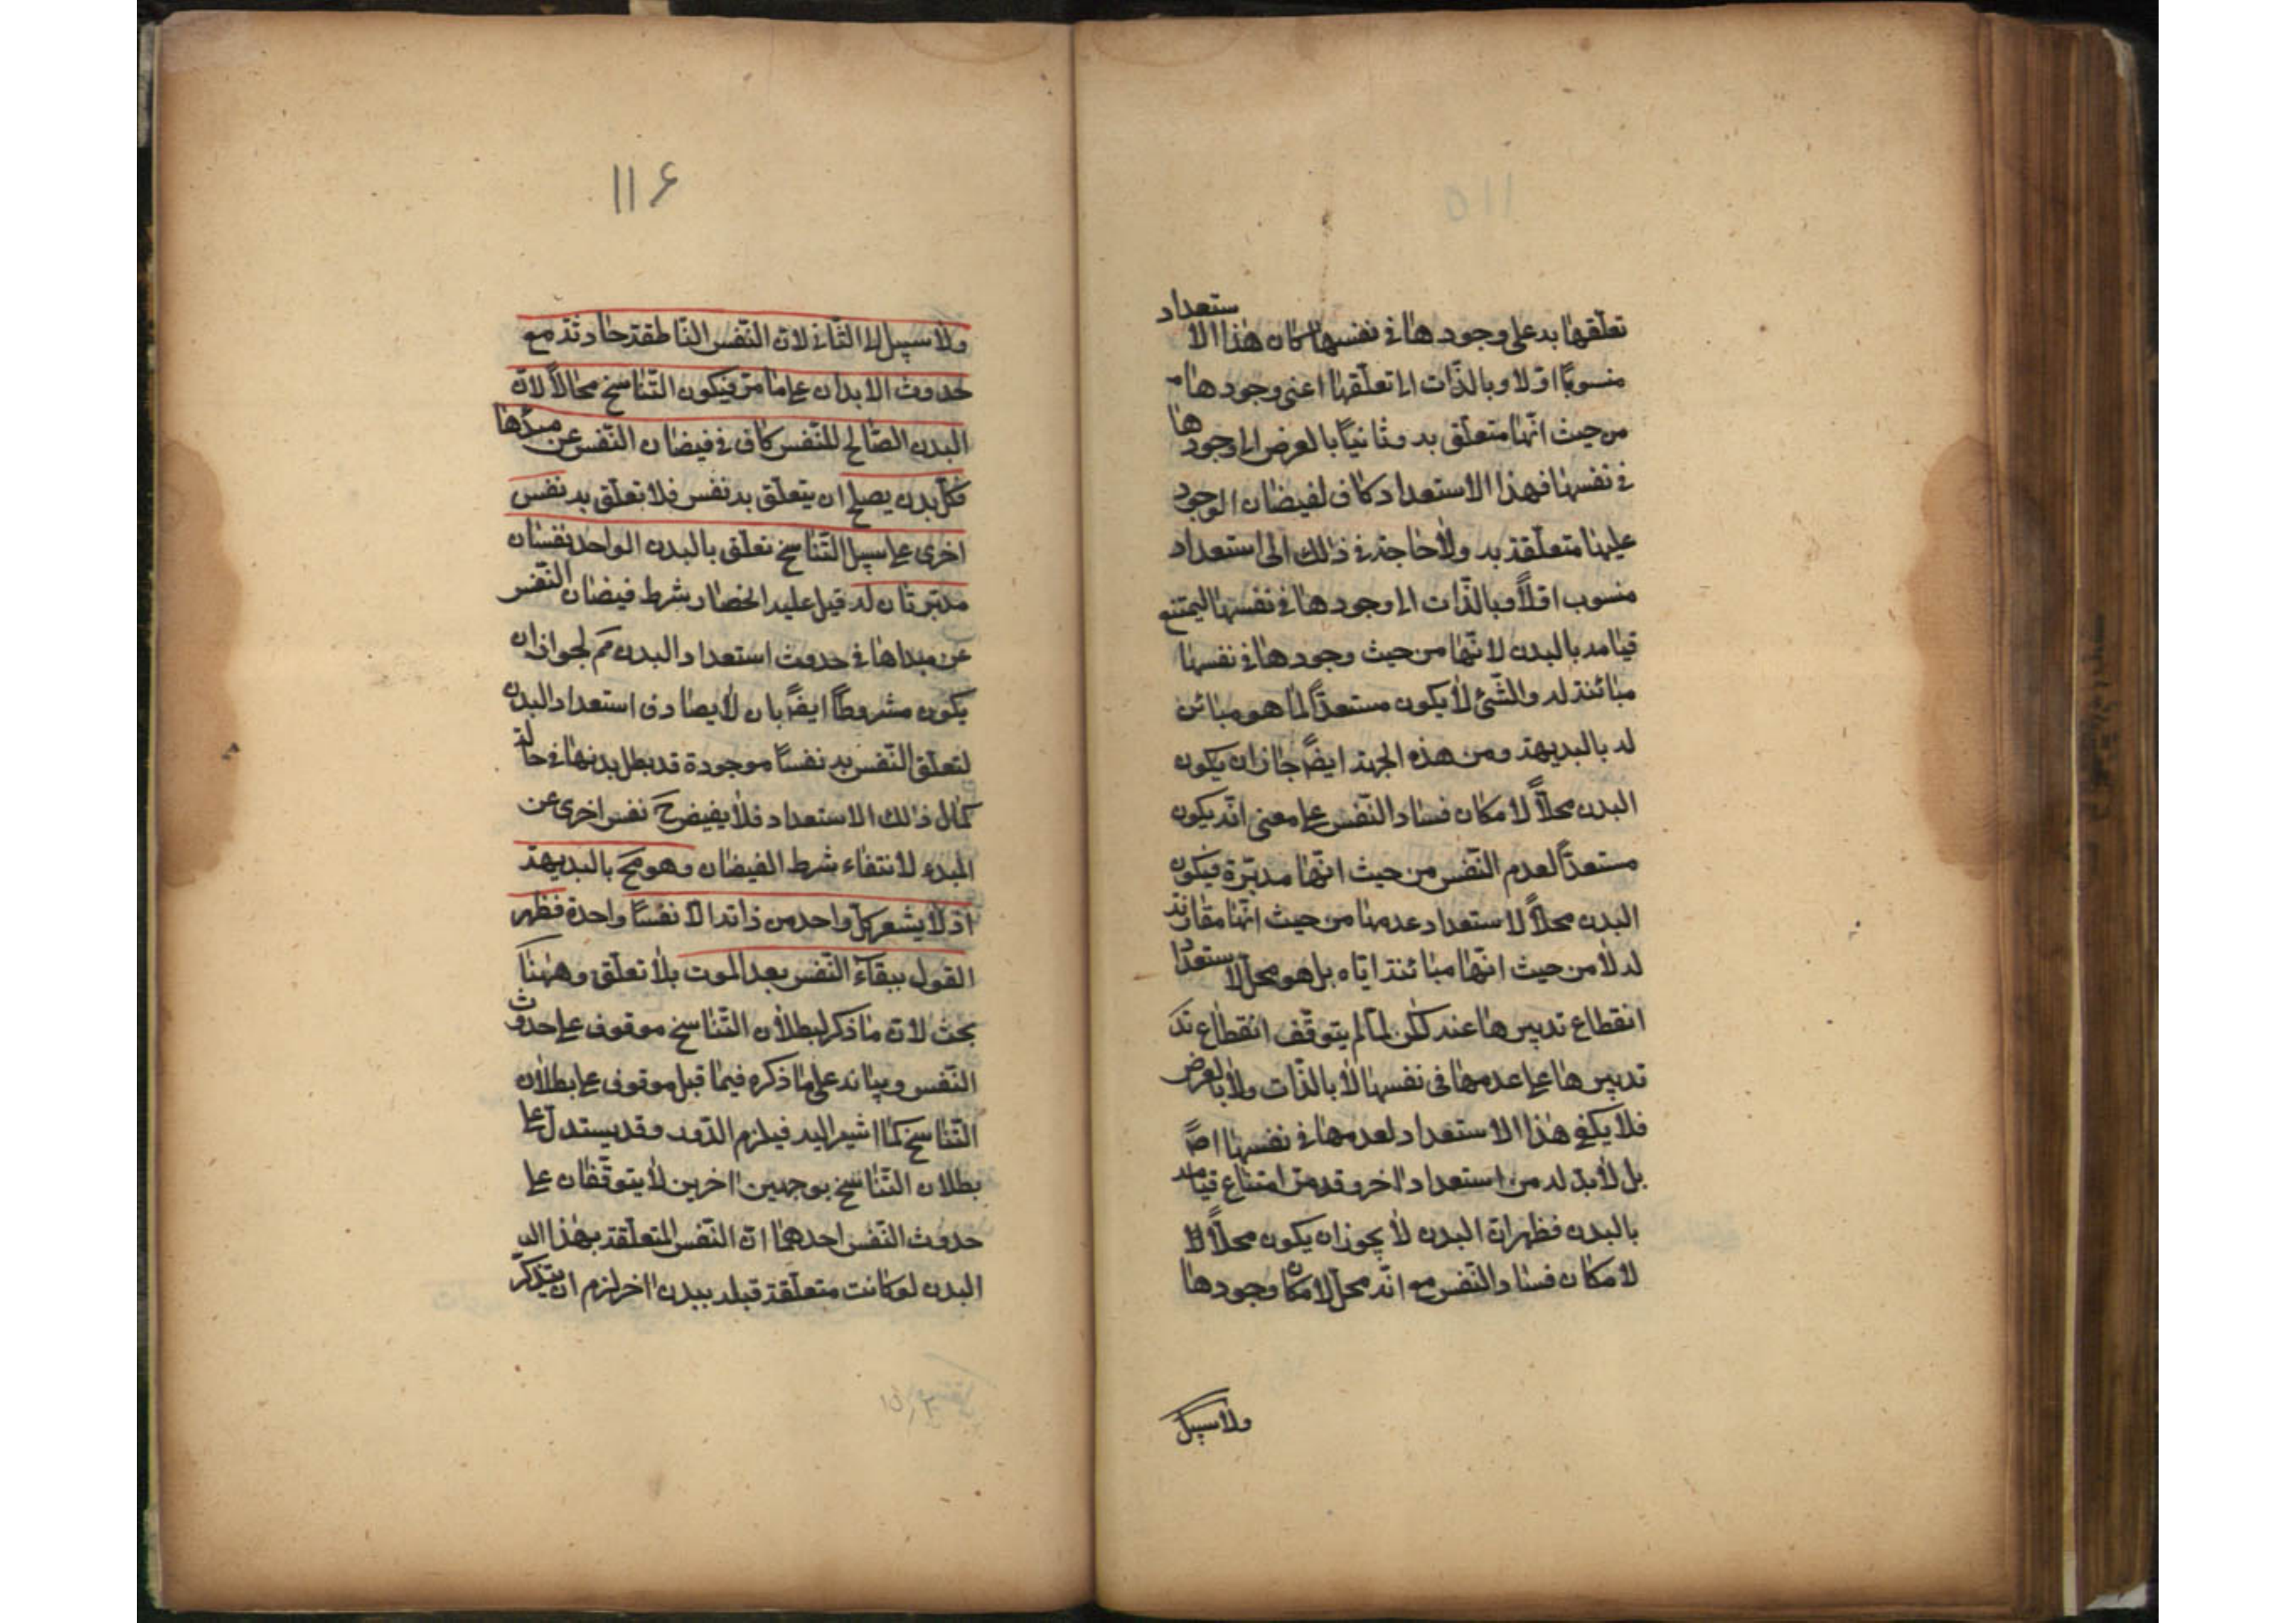 ١١٥
تعلّقها به على وجودها في نفسها كان هذا الاستعداد
منسوبًا اوّلا وبالذّات الى تعلّقها اعنى وجودها
من حيث انّها متعلّق به وثانيًا بالعرض الى وجودها
في نفسها فهذا الاستعداد كاف لفيضان الوجود
عليها متعلّقة به ولا حاجة في ذلك الى استعداد
منسوب اوّلًا وبالذّات الى وجودها في نفسها ليمتنع
قيامه بالبدن لانّها من حيث وجودها في نفسها
مبائنة له والشّئ لا يكون مستعدًّا لما هو مبائن
له بالبديهة ومن هذه الجهة ايضًا جاز ان يكون
البدن محلًّا لامكان فساد النّفس على معنى انّه يكون
مستعدًّا لعدم النّفس من حيث انّها مدبّرة فيكون
البدن محلًّا لاستعداد عدمها من حيث انّها مقارنة
له لا من حيث انّها مبائنة ايّاه بل هو محلّ لاستعداد
انقطاع تدبيرها عنه لكن لمّا لم يتوقّف انقطاع تد
تدبيرها على عدمها فى نفسها لا بالذّات ولا بالعرض
فلا يكفي هذا الاستعداد لعدمها في نفسها اصً
بل لا بدّ له من استعداد اخر وقد مرّ امتناع قيامه
بالبدن فظهر انّ البدن لا يجوز ان يكون محلًّا لا
لامكان فساد النّفس مع انّه محلّ لامكان وجودها
ولا سبيل
١١۶
ولا سبيل الى الثّاني لانّ النّفس النّاطقة حادثة مع
حدوث الابدان على ما مرّ فيكون التّناسخ محالًا لانّ
البدن الصّالح للنّفس كاف في فيضان النّفس عن مبدئها
فكلّ بدن يصلح ان يتعلّق به نفس فلا تعلّق به نفس
اخرى على سبيل التّناسخ تعلّق بالبدن الواحد نفسان
مدبّرتان له قيل عليه انحصار شرط فيضان النّفس
عن مبداها في حدوث استعداد البدن مم لجواز ان
يكون مشروطًا ايضًا بان لا يصادف استعداد البدن
لتعلّق النّفس به نفسًا موجودة قد بطل بدنها في حالة
كمال ذلك الاستعداد فلا يفيض ح نفس اخرى عن
المبدء لانتفاء شرط الفيضان وهو مح بالبديهة
اذ لا يشعر كلّ واحد من ذاته الا نفسًا واحدة فظهر
القول ببقاء النّفس بعد الموت بلا تعلّق وههنا
بحث لانّ ما ذكر لبطلان التّناسخ موقوف على حدوث
النّفس وبيانه على ما ذكره فيما قبل موقوف على بطلان
التّناسخ كما اشير اليه فيلزم الدّور وقد يستدلّ على
بطلان التّناسخ بوجهين اخرين لا يتوقّفان على
حدوث النّفس احدهما انّ النّفس المتعلّقة بهذا البد
البدن لو كانت متعلّقة قبله ببدن اخر لزم ان يتذكّر